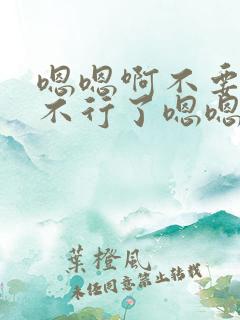 嗯嗯啊不要
不行了嗯嗯
葉橙風
未经同意禁止转载